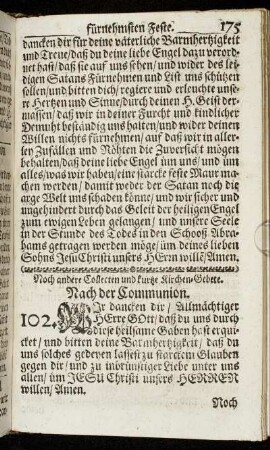 fürnehmsten Feste. 175
dancken dir für deine väterliche Barmhertzigkeit
und Treue/ daß du deine liebe Engel dazu verord-
net hast/ daß sie auf uns sehen/ und wider des lei-
digen Satans Fürnehmen und List uns schützen
sollen/ und bitten dich/ regiere und erleuchte unse-
re Hertzen und Sinne/ durch deinen H. Geist der-
massen/ daß wir in deiner Furcht und kindlicher
Demuht beständig uns halten/ und wider deinen
Willen nichts fürnehmen/ auf daß wir in aller-
ley Zufällen und Nöhten die Zuversicht mögen
behalten/ daß deine liebe Engel üm uns/ und üm
alles/ was wir haben/ eine starcke feste Maur ma-
chen werden/ damit weder der Satan noch die
arge Welt uns schaden könne/ und wir sicher und
ungehindert durch das Geleit der heiligen Engel
zum ewigen Leben gelangen/ und unsere Seele
in der Stunde des Todes in den Schooß Abra-
hams getragen werden möge/ üm deines lieben
Sohns JEsu Christi unsers HErrn willē/ Amen.
Noch andere Collecten und kurtze Kirchen-Gebete.
Nach der Communion.
102. WIr dancken dir/ Allmächtiger
HErre GOtt/ daß du uns durch
diese heilsame Gaben hast erqui-
cket/ und bitten deine Barmhertzigkeit/ daß du
uns solches gedeyen lassest zu starckem Glauben
gegen dir/ und zu inbrünstiger Liebe unter uns
allen/ üm JESU Christi unsers HERREN
willen/ Amen.
Noch